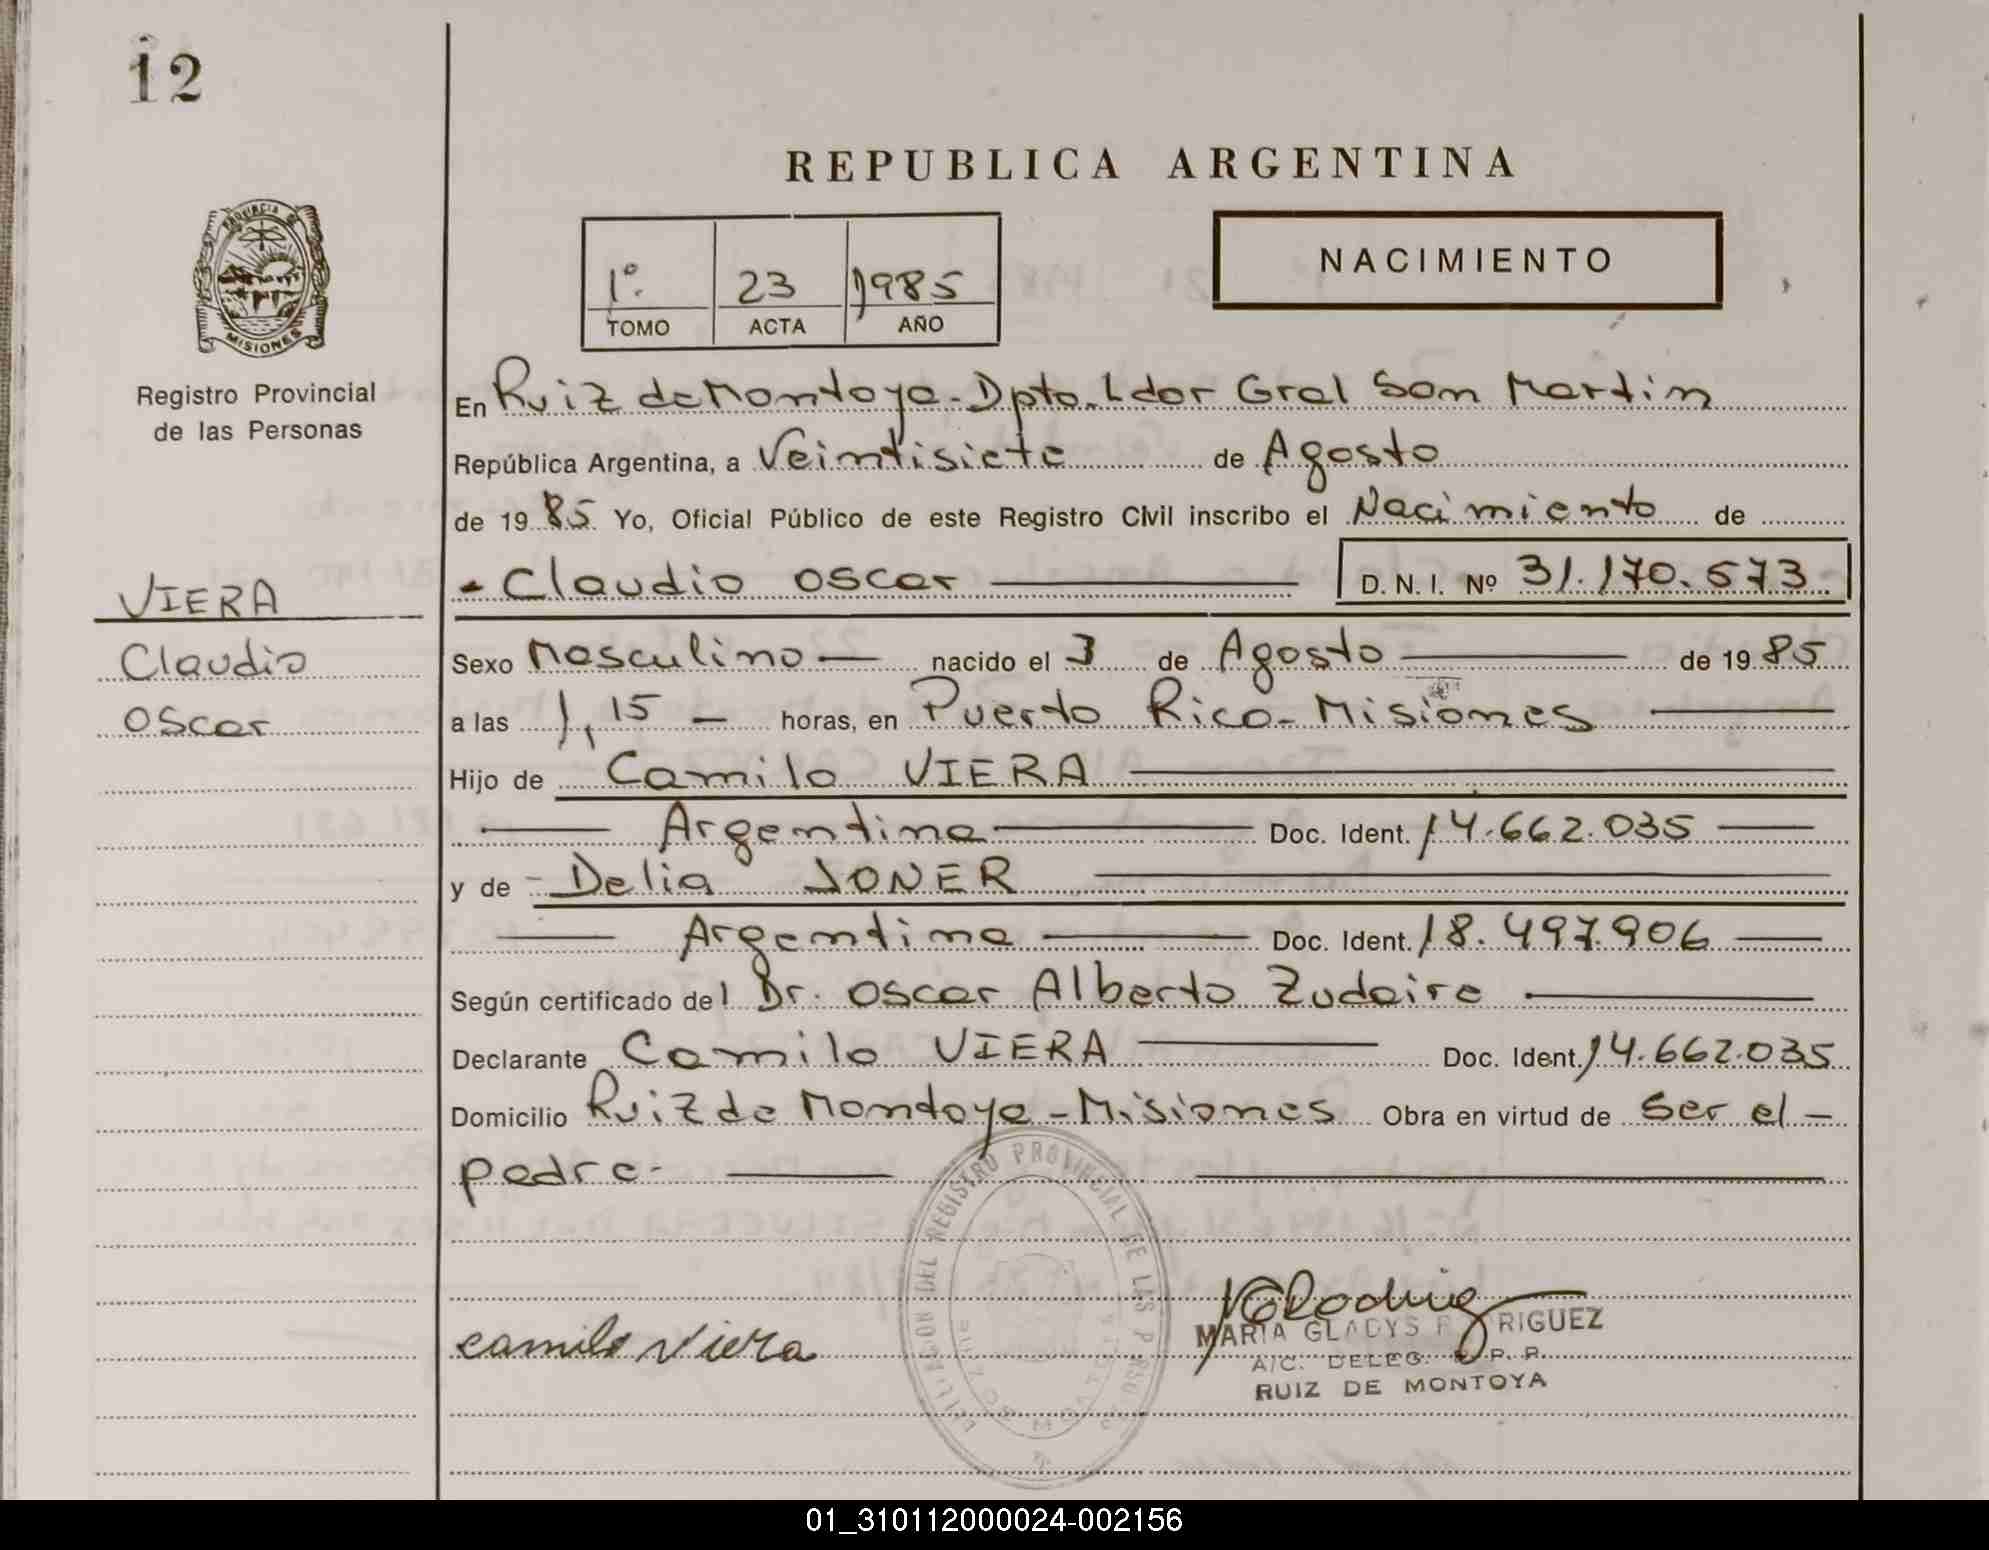 12
REPUBLICA ARGENTINA
PROVINCIA DE
MISIONES
Registro Provincial
de las Personas
1º. 23 1985
TOMO ACTA AÑO
NACIMIENTO
En Ruiz de Montoya - Dpto. Ldor Gral San Martin
República Argentina, a Veintisiete de Agosto
de 1985 Yo, Oficial Público de este Registro Civil inscribo el Nacimiento de
- Claudio Oscar D. N. I. Nº 31.170.573
VIERA
Claudio
Oscar
Sexo Masculino — nacido el 3 de Agosto — de 1985
a las 1,15 — horas, en Puerto Rico - Misiones —
Hijo de Camilo VIERA —
— Argentina — Doc. Ident. 14.662.035 —
y de - Delia JONER —
— Argentina — Doc. Ident. 18.497.906 —
Según certificado del Dr. Oscar Alberto Zudaire —
Declarante Camilo VIERA — Doc. Ident. 14.662.035
Domicilio Ruiz de Montoya - Misiones Obra en virtud de ser el -
padre - —
DEL REGISTRO PROVINCIAL DE LAS
camilo Viera
MARIA GLADYS RIGUEZ
A/C. DELEG. R. P. P.
RUIZ DE MONTOYA
01_310112000024-002156